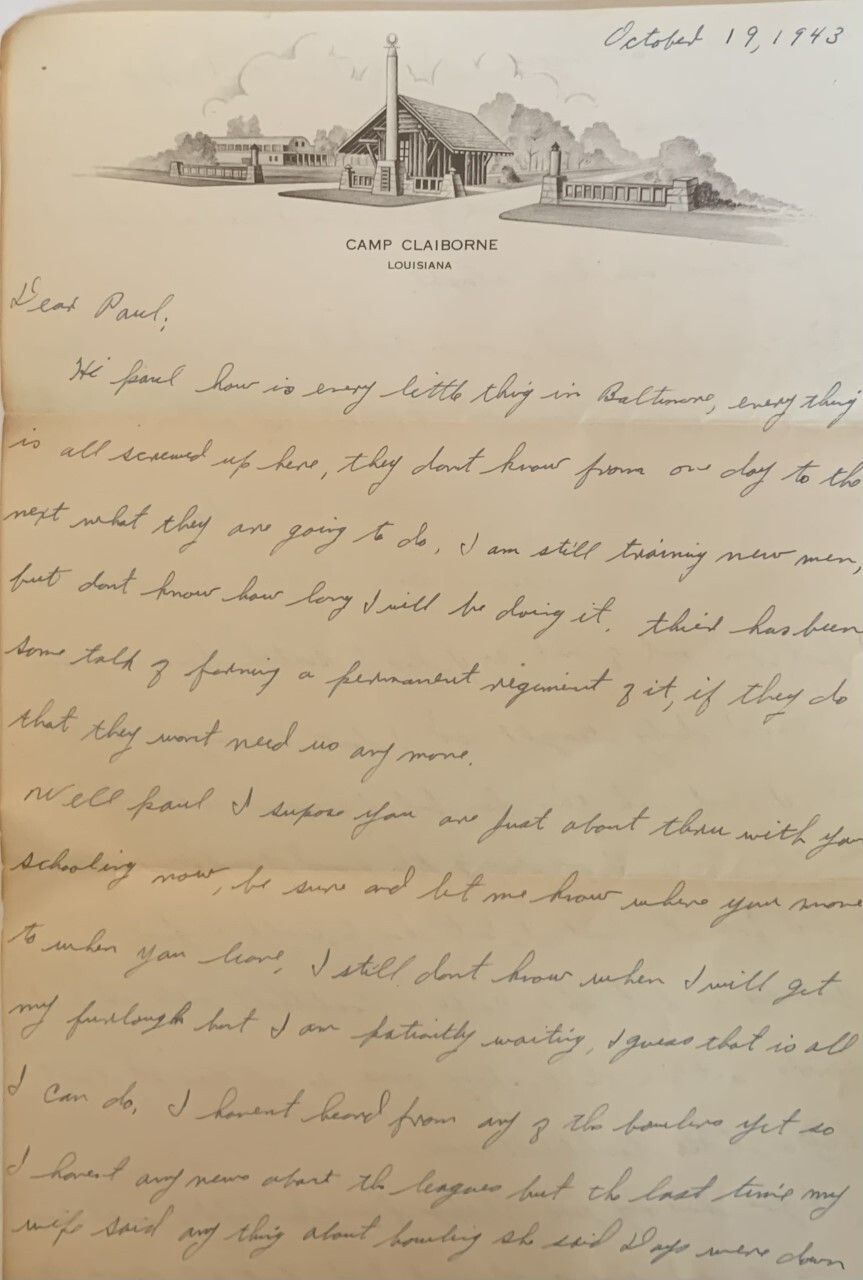 October 19, 1943
CAMP CLAIBORNE
LOUISIANA
Dear Paul;
Hi paul how is every little thing in Baltimore, every thing
is all screwed up here, they dont know from one day to the
next what they are going to do, I am still training new men,
but dont know how long I will be doing it. thier has been
some talk of forming a permanent regiment of it, if they do
that they wont need us any more.
Well paul I supose you are just about thru with you
schooling now, be sure and let me know where you move
to when you leave, I still dont know when I will get
my furlough but I am patiently waiting, I guess that is all
I can do, I havent heard from any of the bowlers yet so
I havent any news about the leagues but the last time my
wife said any thing about bowling she said were down